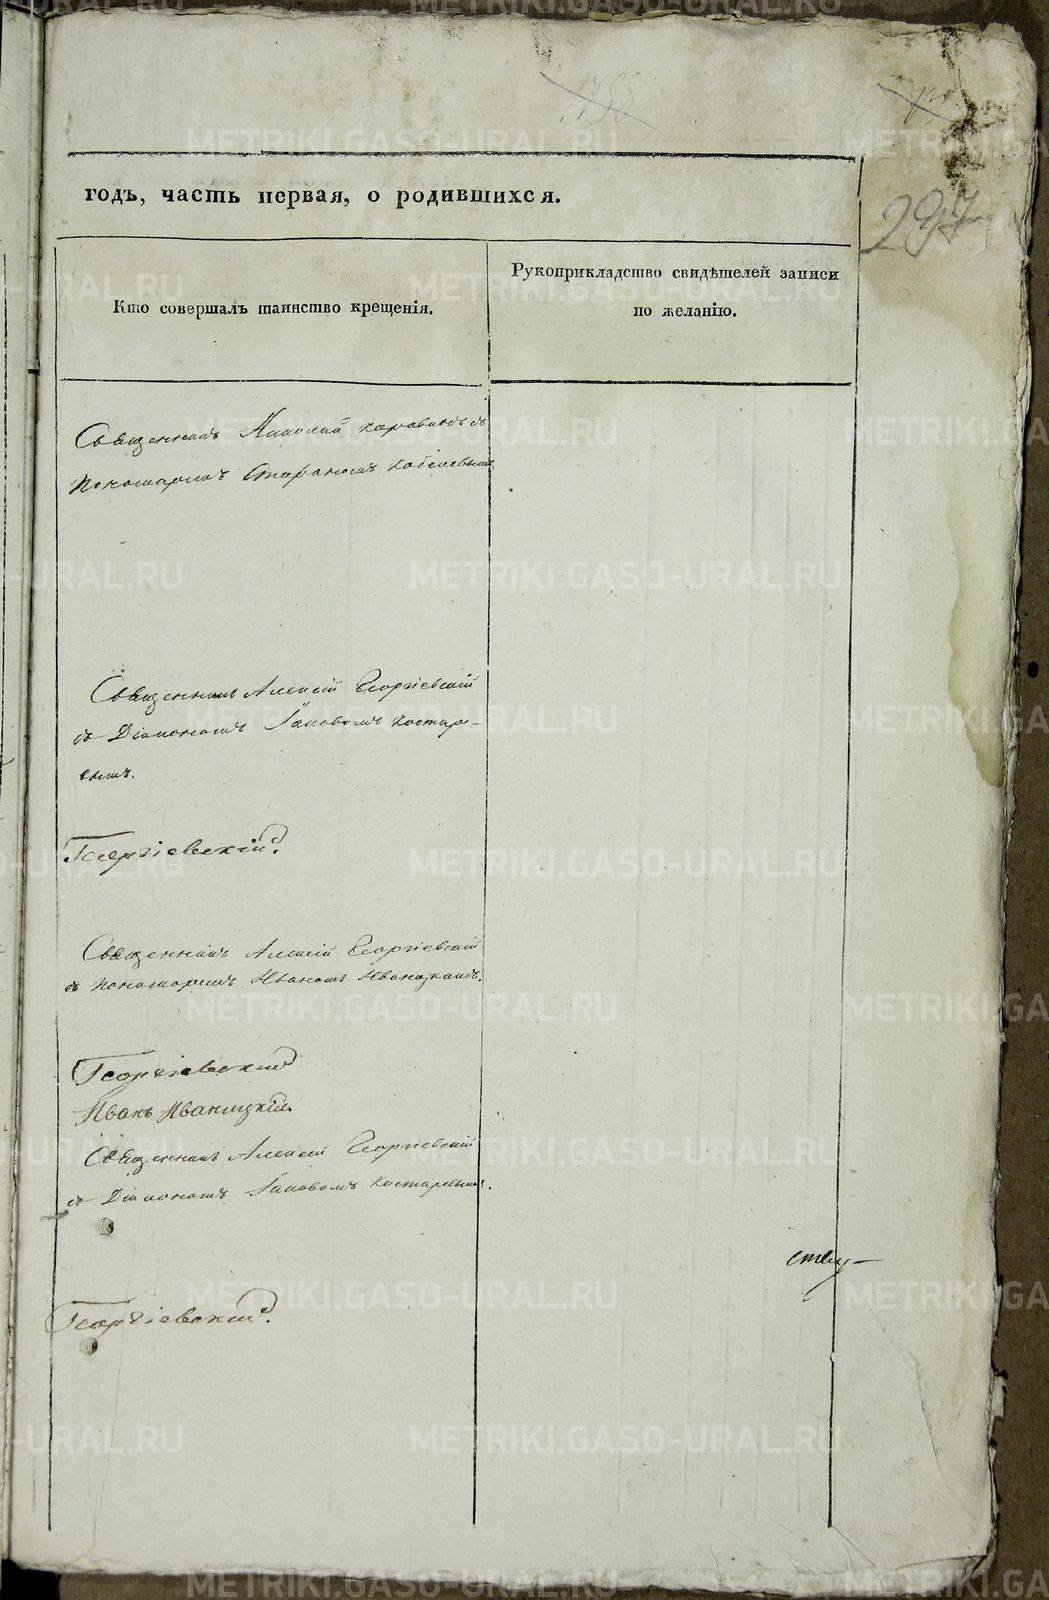 1788
297
годъ, часть первая, о родившихся.
Кто совершалъ таинство крещенія.
Рукоприкладство свидѣтелей записи
по желанію.
Священникъ Николай съ
Пономаремъ
Священникъ Алексій Георгіевскій
съ Діакономъ Іаковомъ Костаре-
вымъ.
Георгіевскій.
Священникъ Алексій Георгіевскій
съ Пономаремъ Иваномъ Иваницкимъ.
Георгіевскій
Иванъ Иваницкій.
Священникъ Алексій Георгіевскій
съ Діакономъ Іаковомъ Костаревымъ.
Георгіевскій.
METRIKI.GASO-URAL.RU